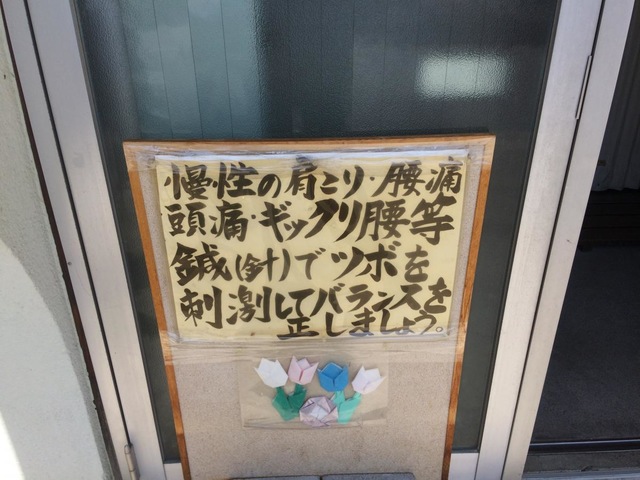 慢性の肩こり・腰痛
頭痛・ギックリ腰等
鍼(針)でツボを
刺激してバランスを
正しましょう。